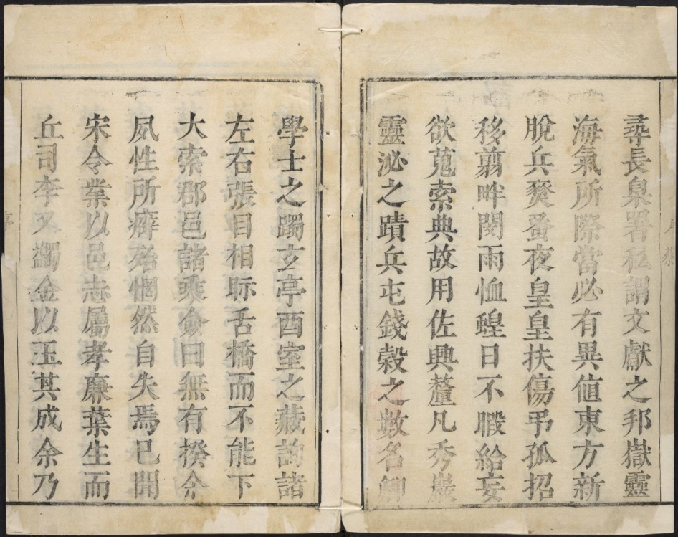 尋長臬署私謂文獻之邦嶽靈
海氣所際當必有異値東方新
脫兵燹晝夜皇皇扶傷弔孤招
移翦畔閔雨恤蝗日不暇給妄
欲蒐索典故用佐典釐凡秀巖
靈泌之蹟兵屯錢榖之數名卿
學士之躅文亭酉室之藏詢諸
左右張目相眎舌橋而不能下
大索郡邑諸乘僉曰無有揆余
夙性所癖殆惘然自失焉已聞
宋令業以邑志屬孝廉葉生而
丘司李又蠲金以玉其成余乃